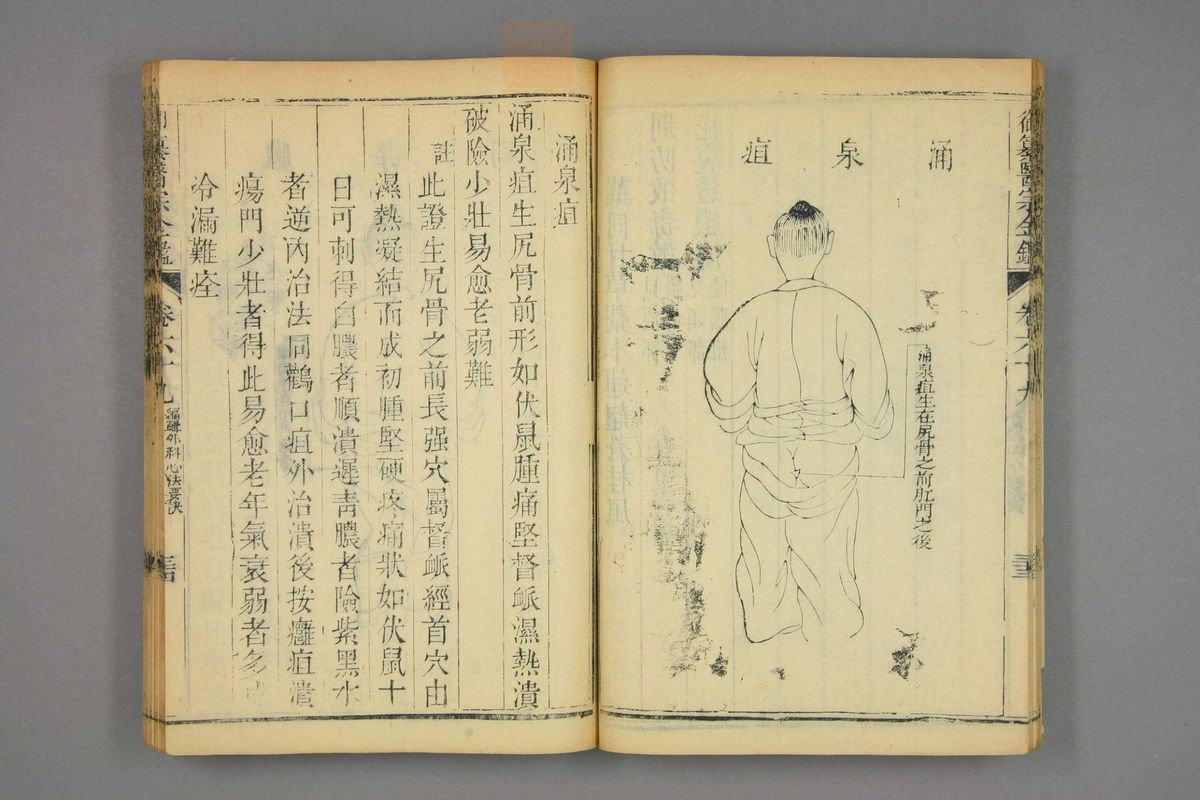 御纂醫宗金鑑 卷六十九
涌泉疽
涌泉疽生在尻骨之前肛門之後
涌泉疽
涌泉疽生尻骨前形如伏鼠腫痛堅督脈濕熱潰
破險少壯易愈老弱難
註此證生尻骨之前長强穴屬督脈經首穴由
濕熱凝結而成初腫堅硬疼痛狀如伏鼠十
日可刺得白膿者順潰遲青膿者險紫黑水
者逆內治法同鸛口疽外治潰後按癰疽潰
瘍門少壯者得此易愈老年氣衰弱者多成
冷漏難痊
醫宗金鑑 卷六十九 編輯外科心法要訣